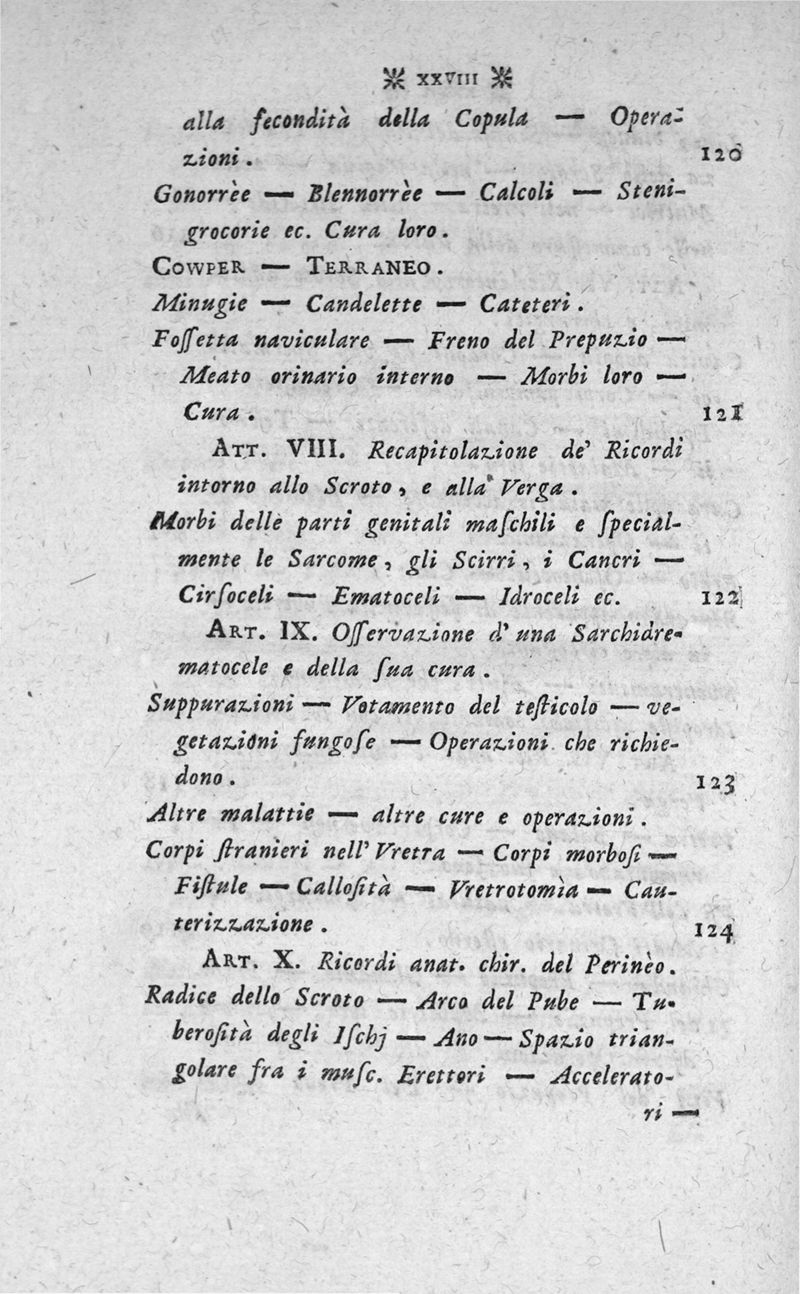 ※ XXVIII ※
alla fecondità della Copula — Opera-
zioni. 120
Gonorrèe — Blennorrèe — Calcoli — Steni-
grocorie ec. Cura loro.
COWPER — TERRANEO.
Minugie — Candelette — Cateteri.
Foſſetta naviculare — Freno del Prepuzio —
Meato orinario interno — Morbi loro —
Cura. 121
ATT. VIII. Recapitolazione de' Ricordi
intorno allo Scroto, e alla Verga.
Morbi delle parti genitali maſchili e ſpecial-
mente le Sarcome, gli Scirri, i Cancri —
Cirſoceli — Ematoceli — Idroceli ec. 122
ART. IX. Oſſervazione d' una Sarchidre-
matocele e della ſua cura.
Suppurazioni — Votamento del teſticolo — ve-
getazioni fungoſe — Operazioni che richie-
dono. 123
Altre malattie — altre cure e operazioni.
Corpi ſtranieri nell' Vretra — Corpi morboſi —
Fiſtule — Calloſità — Vretrotomìa — Cau-
terizzazione. 124
ART. X. Ricordi anat. chir. del Perinèo.
Radice dello Scroto — Arco del Pube — Tu-
beroſità degli Iſchj — Ano — Spazio trian-
golare fra i muſc. Erettori — Accelerato-
ri —